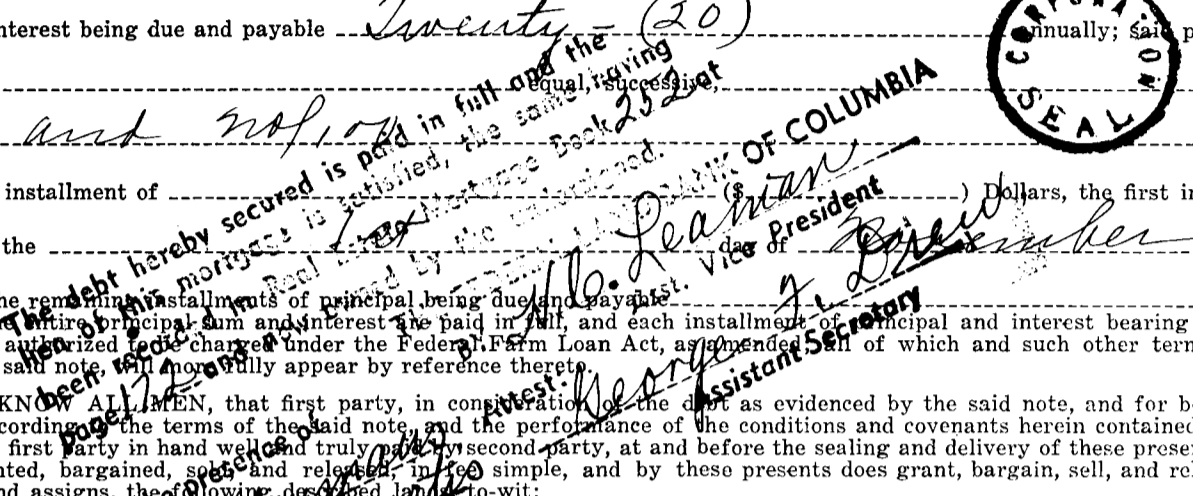 nterest being due and payable Twenty - (20) nnually; said p
equal, successive,
and no/100
installment of ($ ) Dollars, the first in
the 1st day of November
he remaining installments of principal being due and payable
e entire principal sum and interest are paid in full, and each installment of principal and interest bearing
authorized to be charged under the Federal Farm Loan Act, as amended, all of which and such other tern
said note, will more fully appear by reference thereto.
KNOW ALL MEN, that first party, in consideration of the debt as evidenced by the said note, and for b
cording to the terms of the said note, and the performance of the conditions and covenants herein contained
first party in hand well and truly paid by second party, at and before the sealing and delivery of these prese
nted, bargained, sold and released, in fee simple, and by these presents does grant, bargain, sell, and re
nd assigns, the following described lands, to-wit:
The debt hereby secured is paid in full and the
lien of this mortgage is satisfied, the same having
been recorded in Real Estate Mortgage Book 252 at
page 172 and by the undersigned.
BANK OF COLUMBIA
H.C. Leaman
Vice President
Attest: George F. Drew
Assistant Secretary
presence of
CORPORATION
SEAL